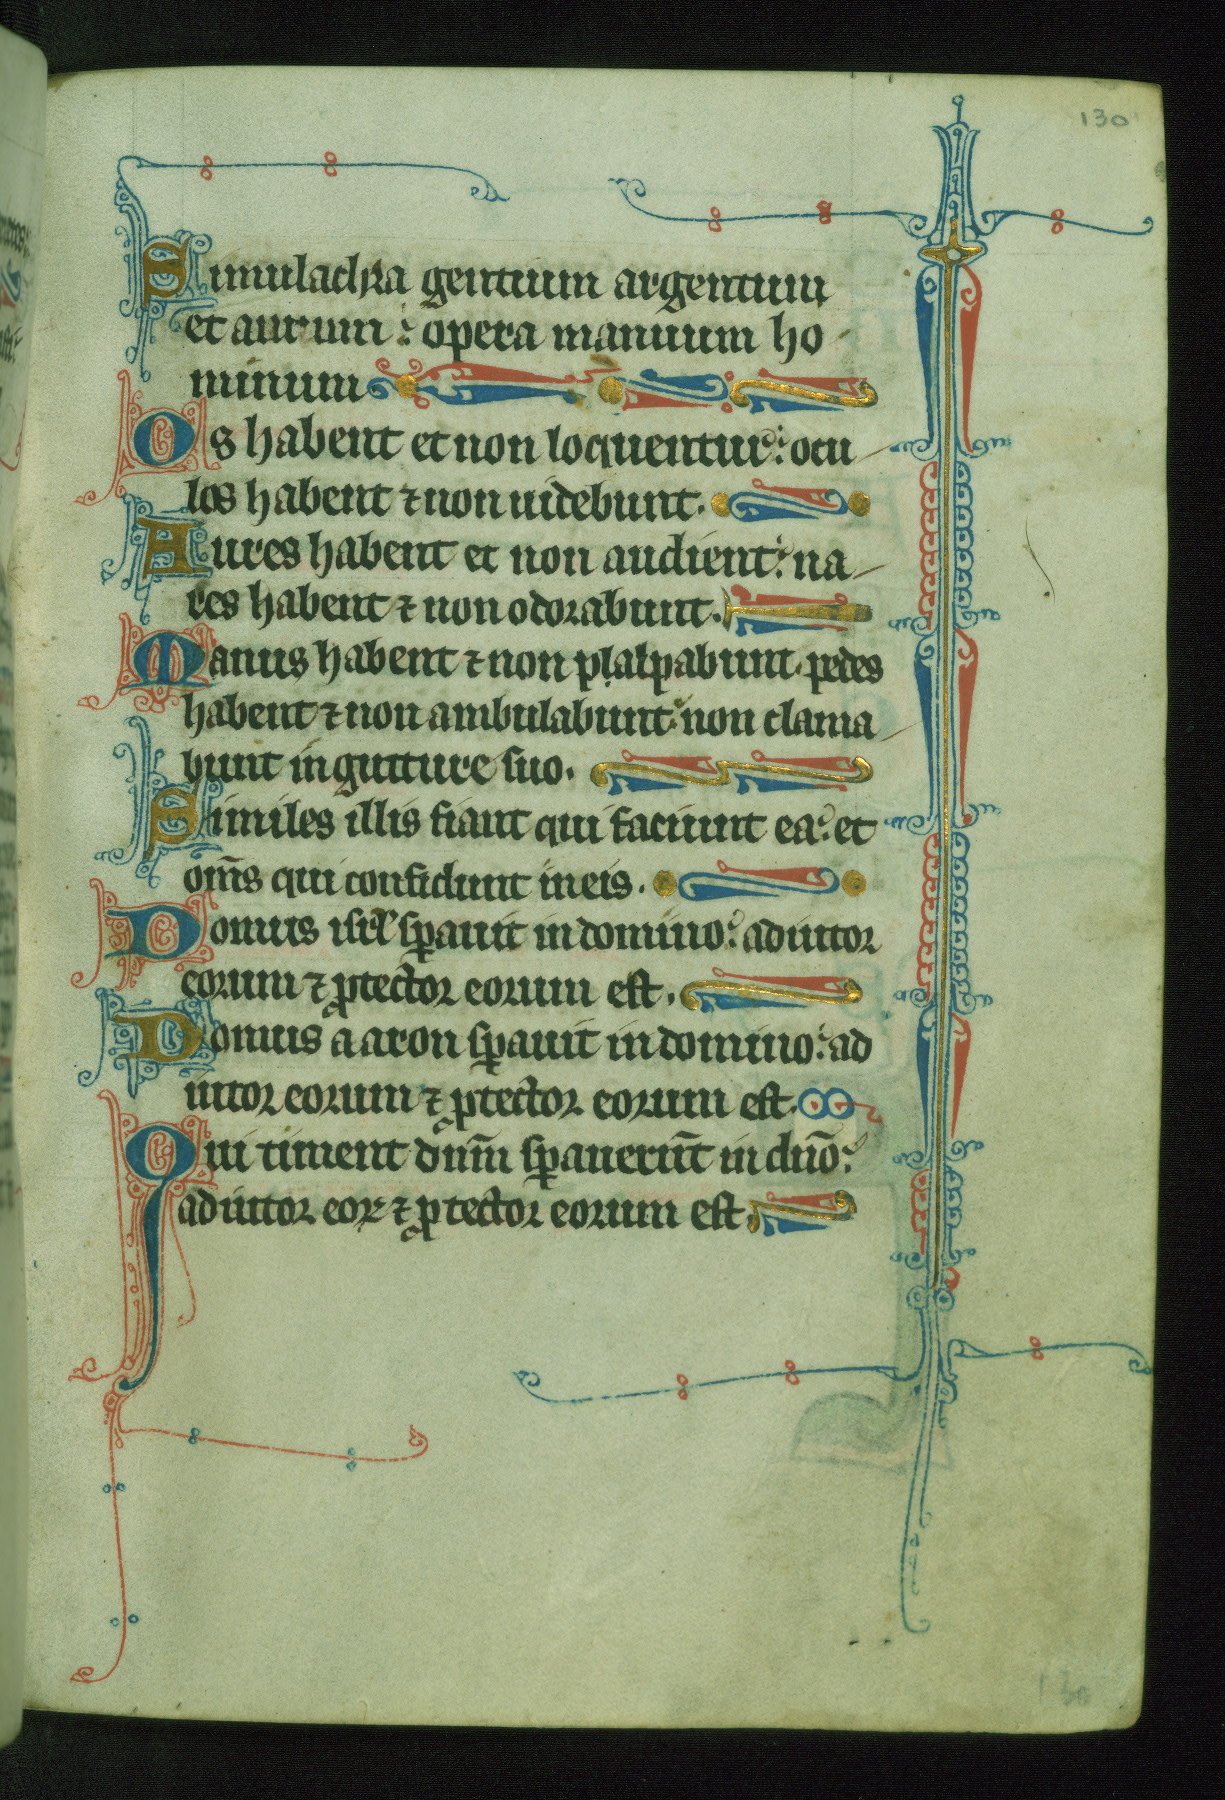 130
Simulachra gentium argentum
et aurum : opera manuum ho
minum
Os habent et non loquentur : ocu
los habent ⁊ non uidebunt .
Aures habent et non audient : na
res habent ⁊ non odorabunt .
Manus habent ⁊ non plalpabunt . pedes
habent ⁊ non ambulabunt : non clama
bunt in gutture suo .
Similes illis fiant qui faciunt ea : et
om̄s qui confidunt in eis .
Domus isrl̕ sꝑauit in domino : adiutor
eorum ⁊ ꝓtector eorum est .
Domus aaron sꝑauit in domino : ad
iutor eorum ⁊ ꝓtector eorum est .
Qui timent dnm̄ sꝑauerūt in dn̄o :
adiutor eoꝝ ⁊ ꝓtector eorum est
130